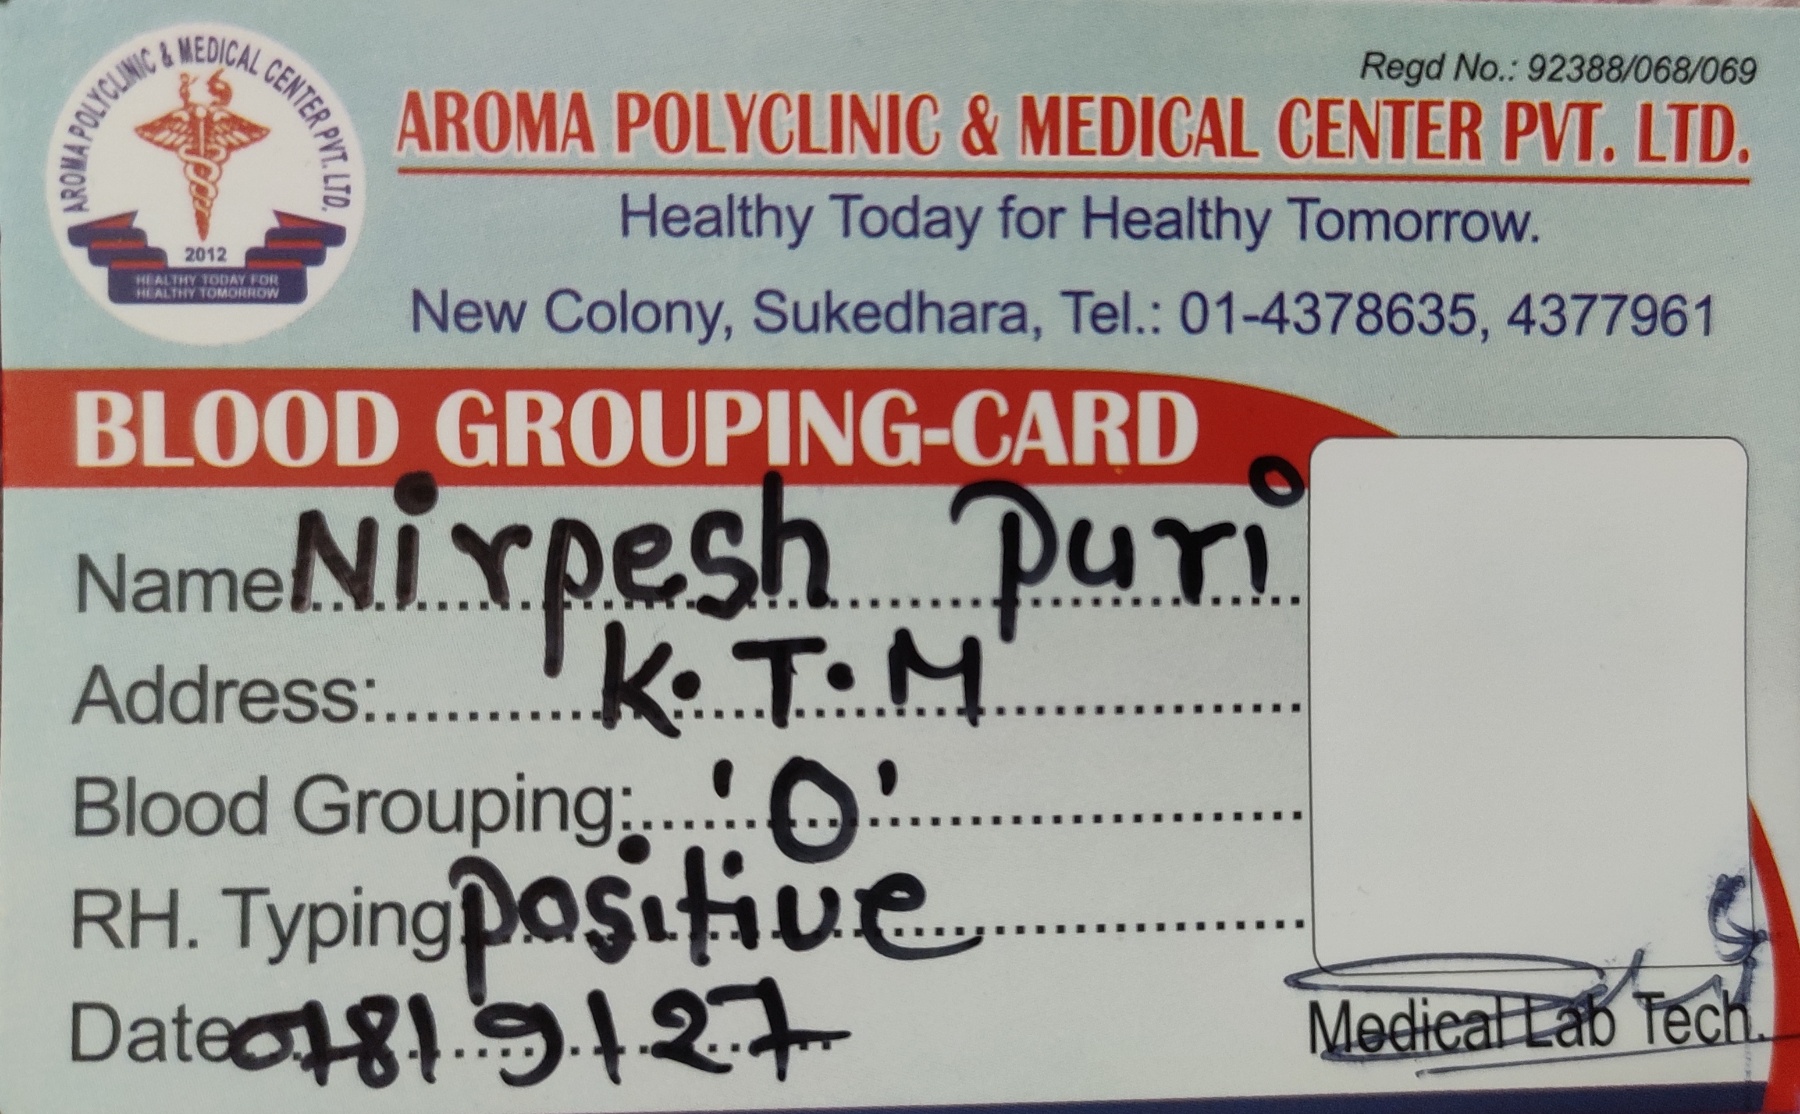 AROMA POLYCLINIC & MEDICAL CENTER PVT. LTD.
2012
HEALTHY TODAY FOR
HEALTHY TOMORROW
Regd No.: 92388/068/069
AROMA POLYCLINIC & MEDICAL CENTER PVT. LTD.
Healthy Today for Healthy Tomorrow.
New Colony, Sukedhara, Tel.: 01-4378635, 4377961
BLOOD GROUPING-CARD
Name Nirpesh Puri
Address: K.T.M
Blood Grouping: 'O'
RH. Typing Positive
Date 078/9/27
Medical Lab Tech.